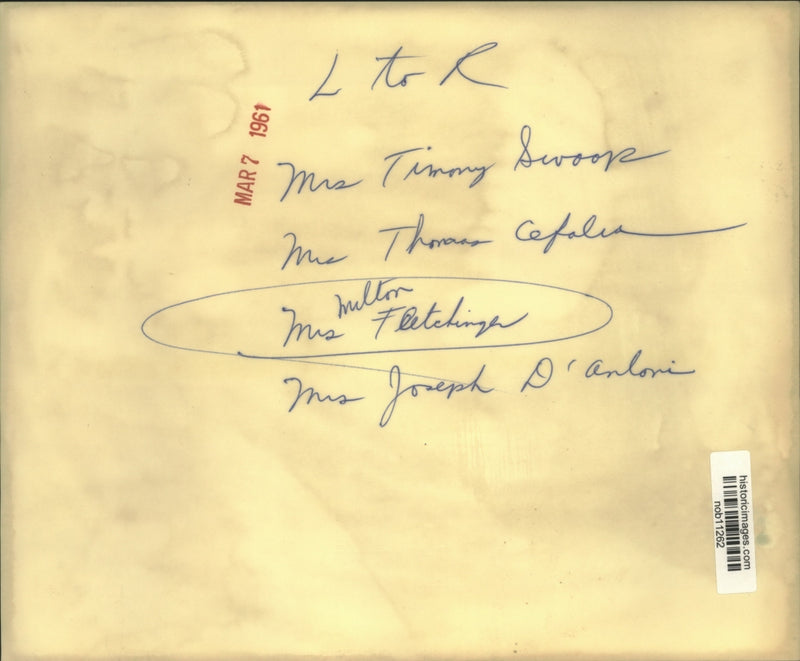 L to R
MAR 7 1961
Mrs Timmy Swoop
Mrs Thomas Cefalu
Milton
Mrs Fletchinger
Mrs Joseph D'Antoni
historicimages.com
nob11262